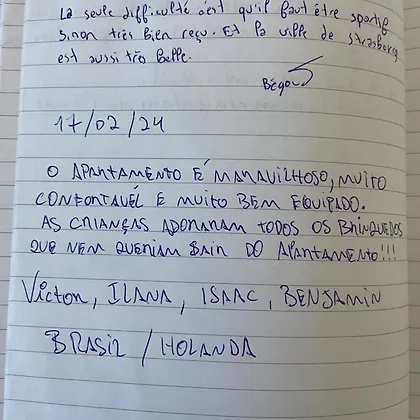 La seule difficulté c'est qu'il faut être sportif
sinon très bien reçu. Et la ville de strasbourg
est aussi très belle.
17/02/24
O APARTAMENTO É MARAVILHOSO, MUITO
CONFORTAVÉL E MUITO BEM EQUIPADO.
AS CRIANÇAS ADORARAM TODOS OS BRINQUEDOS
QUE NEM QUERIAM SAIR DO APARTAMENTO!!!
Victor, ILANA, ISAAC, BENJAMIN
BRASIL / HOLANDA